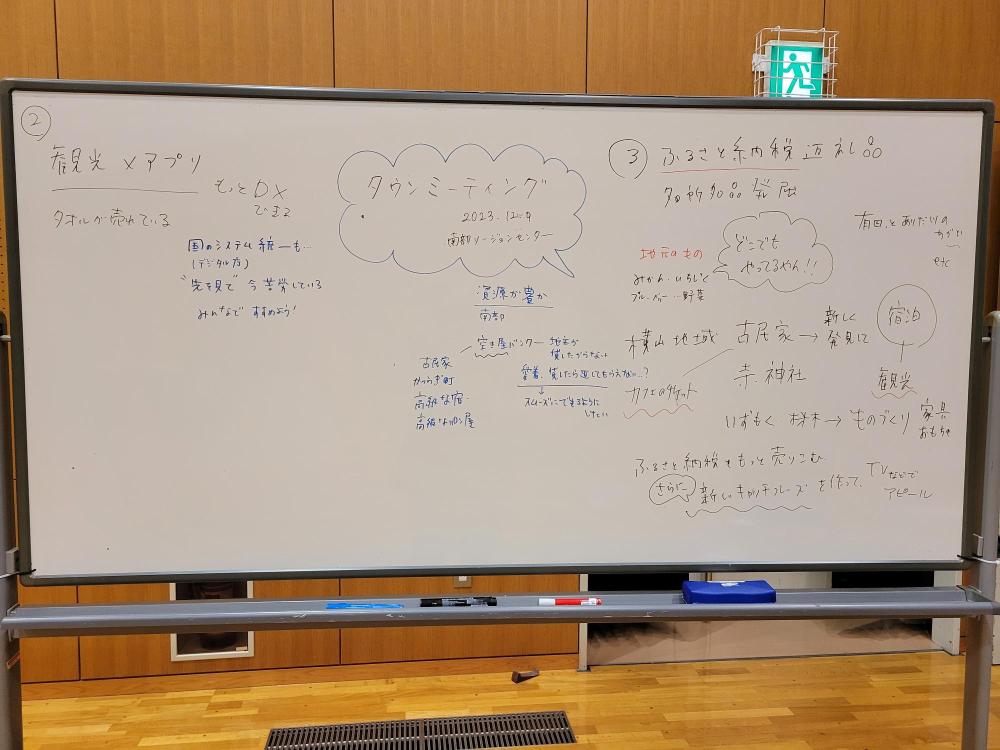 ②
観光 × アプリ
もっとDX
できる
タオルが売れている
国のシステム統一も…
(デジタル庁)
"先を見て" 今苦労している
みんなで すすめよう!
タウンミーティング
2023.12.9
南部リージョンセンター
資源が豊か
南部
空き屋バンク
地主が
貸したがらない
愛着、貸したら返してもらえない…?
スムーズにできるように
したい
古民家
かつらぎ町
高級な宿
高級な
屋
③
ふるさと納税 返礼品
発展
地元のもの
みかん・いちじく
ブルーベリー…野菜
どこでも
やってるやん!!
有田
etc
横山地域
古民家 → 新しく
発見に
宿泊
観光
寺、神社
カフェのチケット
いずもく 材木 → ものづくり
家具
おもちゃ
ふるさと納税をもっと売りこむ
さらに
新しいキャッチフレーズを作って、
TVなどで
アピール